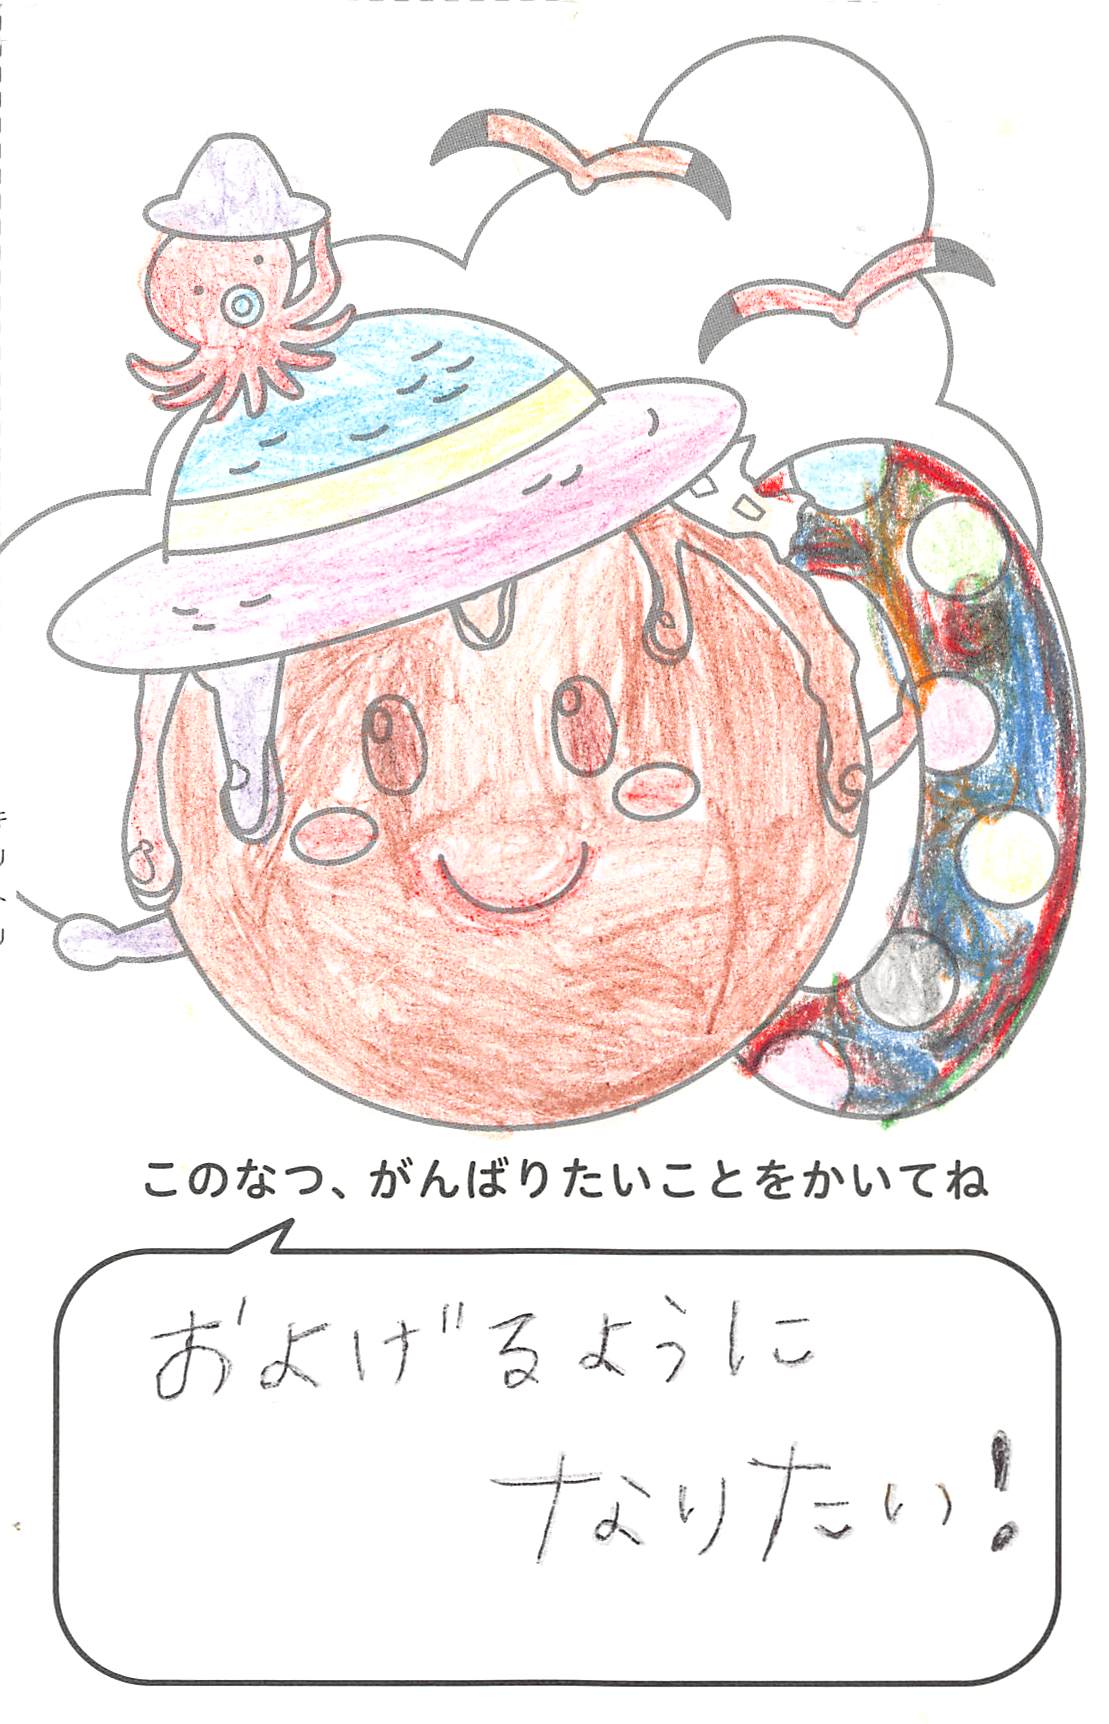 このなつ、がんばりたいことをかいてね
およげるように
なりたい!